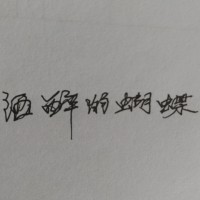 酒醉的蝴蝶